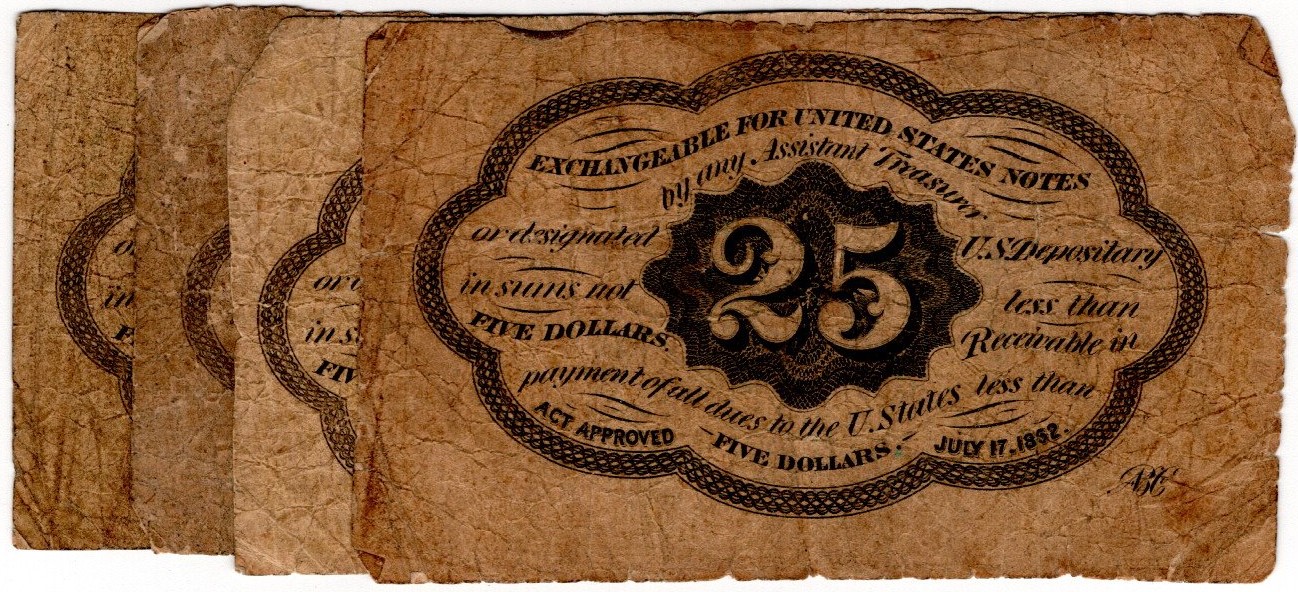 EXCHANGEABLE FOR UNITED STATES NOTES
by any Assistant Treasurer
or designated U.S. Depositary
in sums not less than
FIVE DOLLARS. Receivable in
payment of all dues to the U. States less than
FIVE DOLLARS.
ACT APPROVED JULY 17. 1862.
25
ABC
or
in
F
or d
in s
FIV